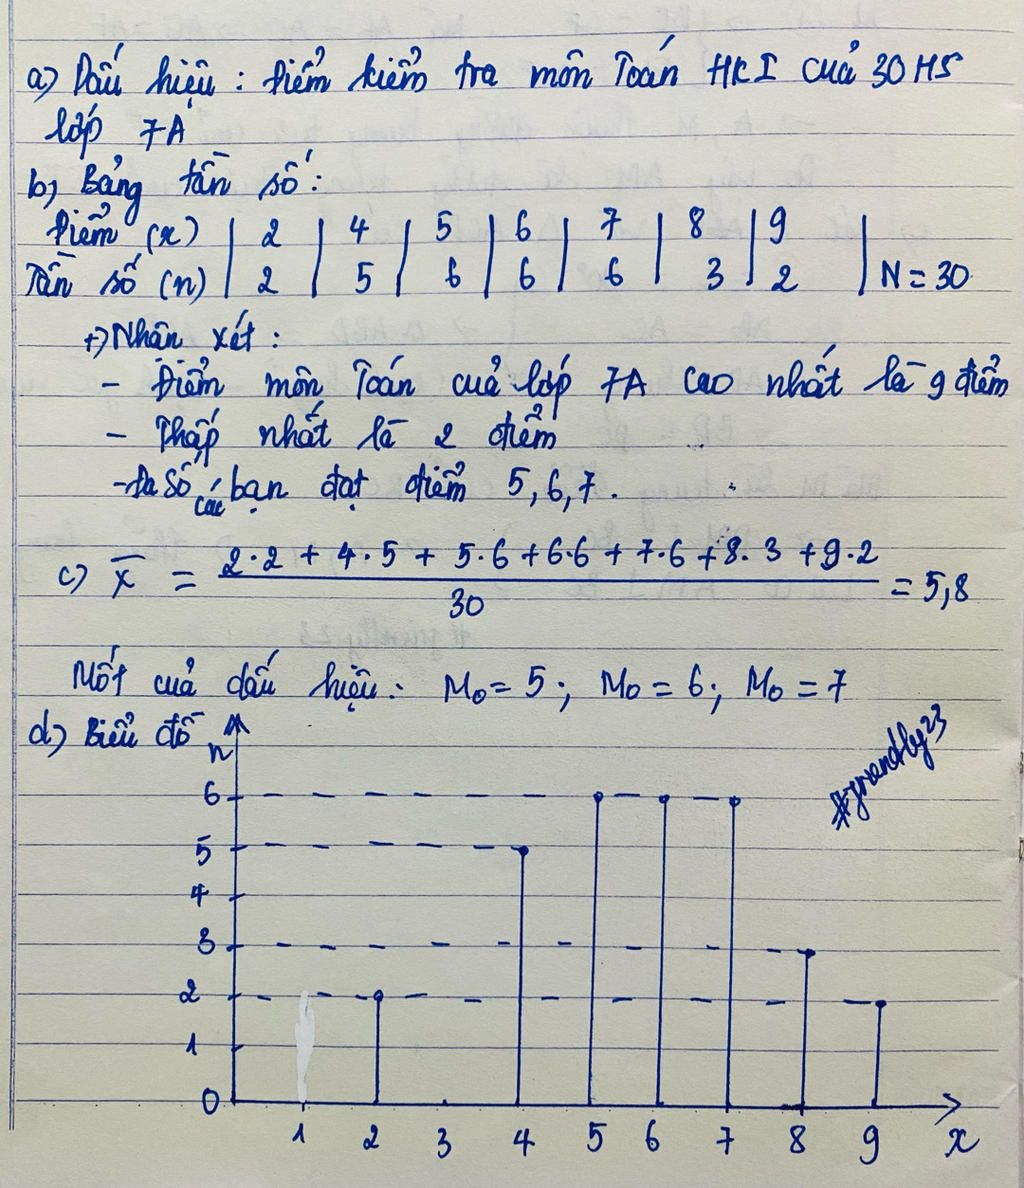 a) Dấu hiệu : Điểm kiểm tra môn Toán HKI của 30 HS
lớp 7A
b) Bảng tần số :
Điểm (x) | 2 | 4 | 5 | 6 | 7 | 8 | 9 |
Tần số (n) | 2 | 5 | 6 | 6 | 6 | 3 | 2 | N = 30
+) Nhận xét :
- Điểm môn Toán của lớp 7A cao nhất là 9 điểm
- Thấp nhất là 2 điểm
- Đa số các bạn đạt điểm 5, 6, 7 .
c) x̄ = (2·2 + 4·5 + 5·6 + 6·6 + 7·6 + 8·3 + 9·2) / 30 = 5,8
Mốt của dấu hiệu : M₀ = 5 ; M₀ = 6 ; M₀ = 7
d) Biểu đồ
n
#friendly23
6
5
4
3
2
1
0
1 2 3 4 5 6 7 8 9 x